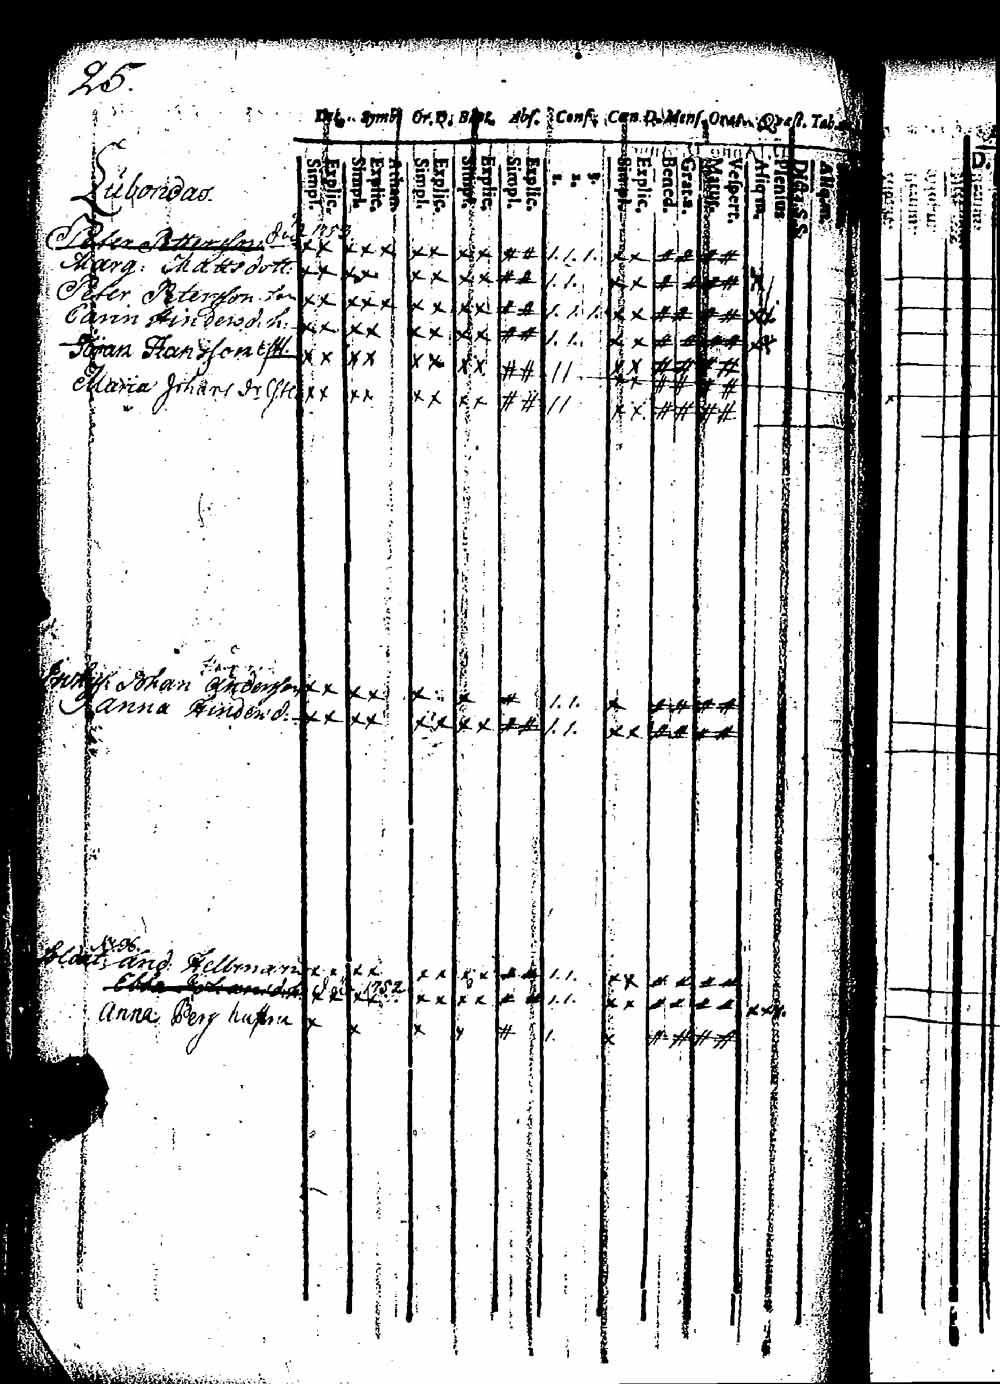 25.
Dec. Symb. Or. D. Bapt. Abs. Conf. Cœn. D. Mens. Orat. Quæst. Tab.
Simpl. Explic. Simpl. Explic. Athan. Simpl. Explic. Simpl. Explic. Simpl. Explic. 1. 2. 3. Simpl. Explic. Bened. Grat. a. Matut. Vespert. Aliq. m. Plenius Dicta S. S. Aliq. m. D.
Lubondas.
Peter Petersson 1753
x x x x x x x x x # # 1. 1. 1. x x # # # #
Marg. Matts dott.
x x x x x x x x # # 1. 1. x x # # # # x
Peter Petersson son
x x x x x x x x x # # 1. 1. 1. x x # # # # x x
Carin Hindersd. h.
x x x x x x x x # # 1. 1. x x # # # # x x
Johan Hansson
x x x x x x x x # # 1 1 x x # # # #
Maria Johans dr
x x x x x x x x # # 1 1 x x # # # #
Johan Andersson
x x x x x x # 1. 1. x # # # #
Anna Hindersd.
x x x x x x x x # # 1. 1. x x # # # #
No 96.
Soldat And. Hellman
x x x x x x x x # # 1. 1. x x # # # #
1752
x x x x x x x x # # 1. 1. x x # # # # x x x.
Anna Berg hustru
x x x x # 1. x # # # #